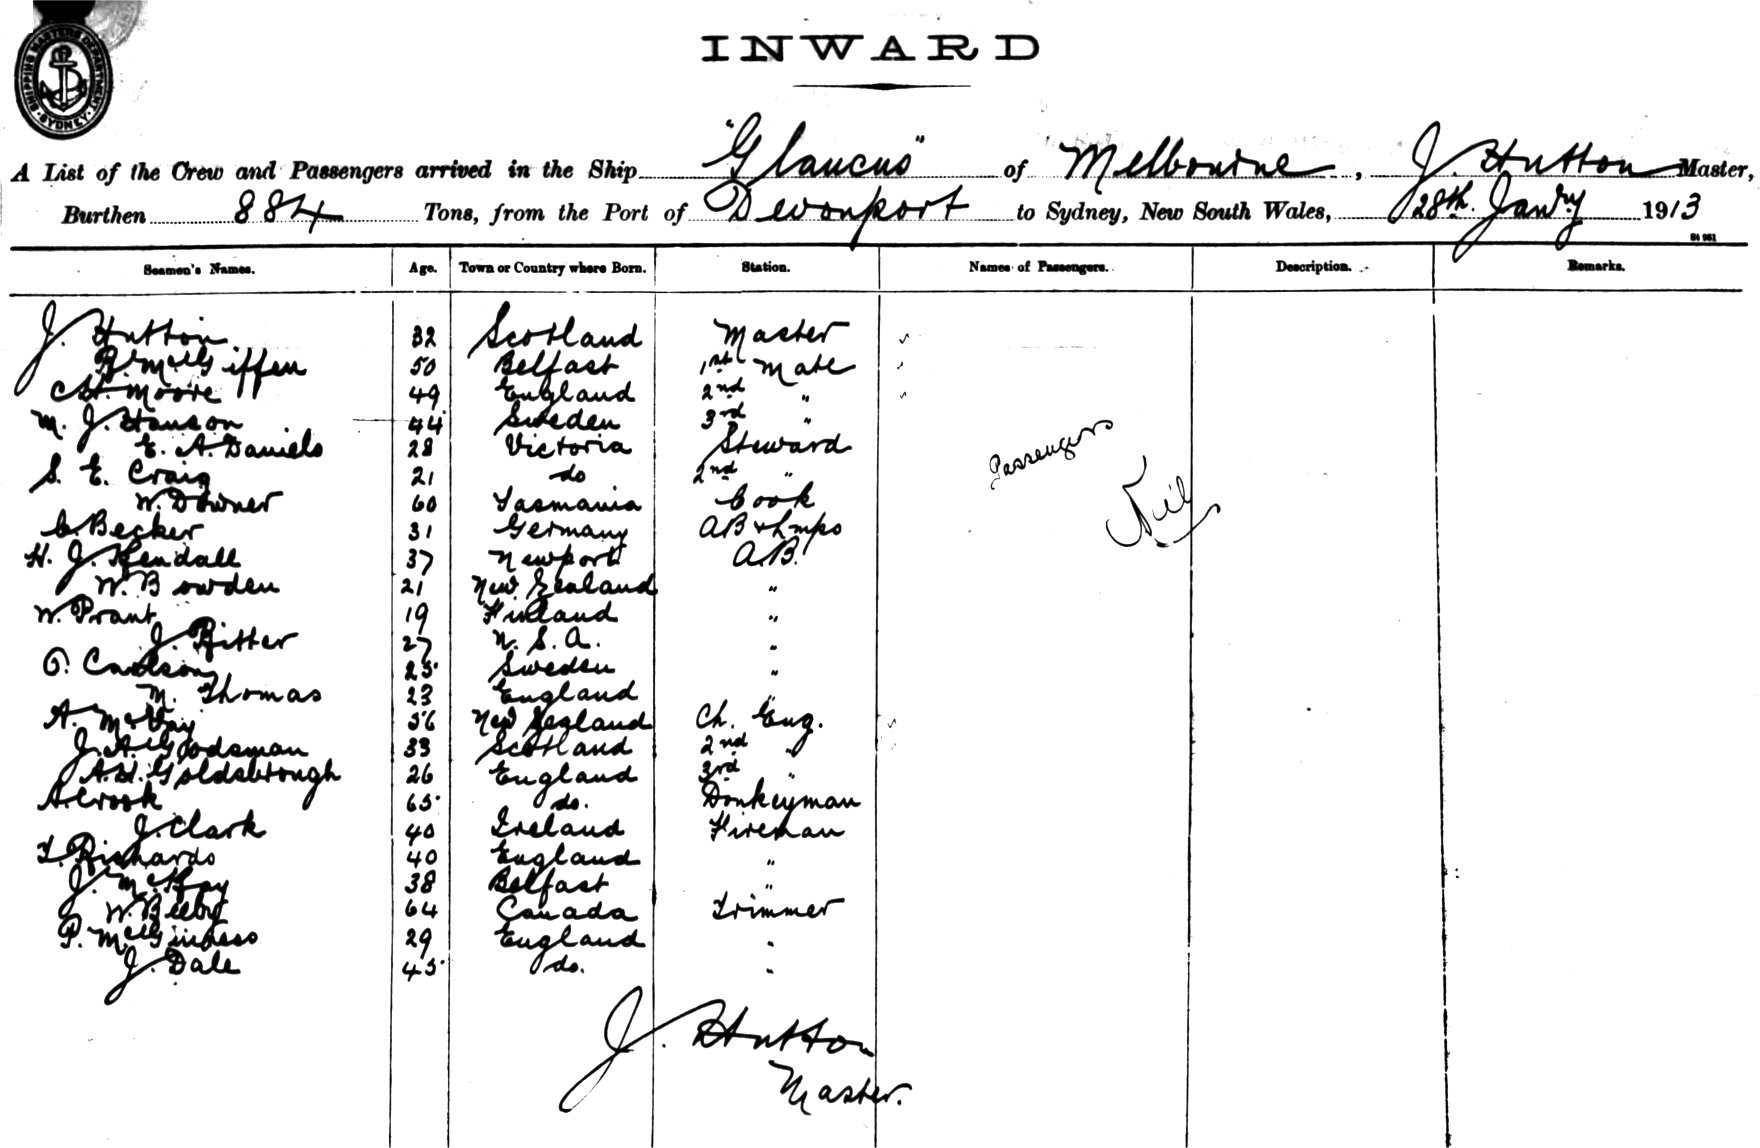 SHIPPING MASTERS DEPARTMENT SYDNEY
INWARD
A List of the Crew and Passengers arrived in the Ship "Glaucus" of Melbourne, J. Hutton Master,
Burthen 884 Tons, from the Port of Devonport to Sydney, New South Wales, 28th. Jan'ry 1913
Seamen's Names. Age. Town or Country where Born. Station. Names of Passengers. Description. Remarks.
J. Hutton 32 Scotland Master
R. McGiffen 50 Belfast 1st Mate
C.H. Moore 49 England 2nd "
M. J. Hanson 44 Sweden 3rd "
E. A. Daniels 28 Victoria Steward
S. E. Craig 21 do 2nd "
W. Downer 60 Tasmania Cook
C. Becker 31 Germany AB & Lmps
H. J. Kendall 37 Newport A.B.
W. Bowden 21 New Zealand "
W. Prant 19 Finland "
J. Ritter 27 U. S. A. "
O. Carlson 25 Sweden "
M. Thomas 23 England "
A. McVay 56 New Zealand Ch. Eng.
J. A. Goodsman 33 Scotland 2nd "
A. H. Goldsbrough 26 England 3rd "
A. Crook 65 do. Donkeyman
J. Clark 40 Ireland Fireman
T. Richards 40 England "
J. McKay 38 Belfast "
W. Bilby 64 Canada Trimmer
P. McGinness 29 England "
J. Dale 45 do. "
Passengers
Nil
J. Hutton
Master.